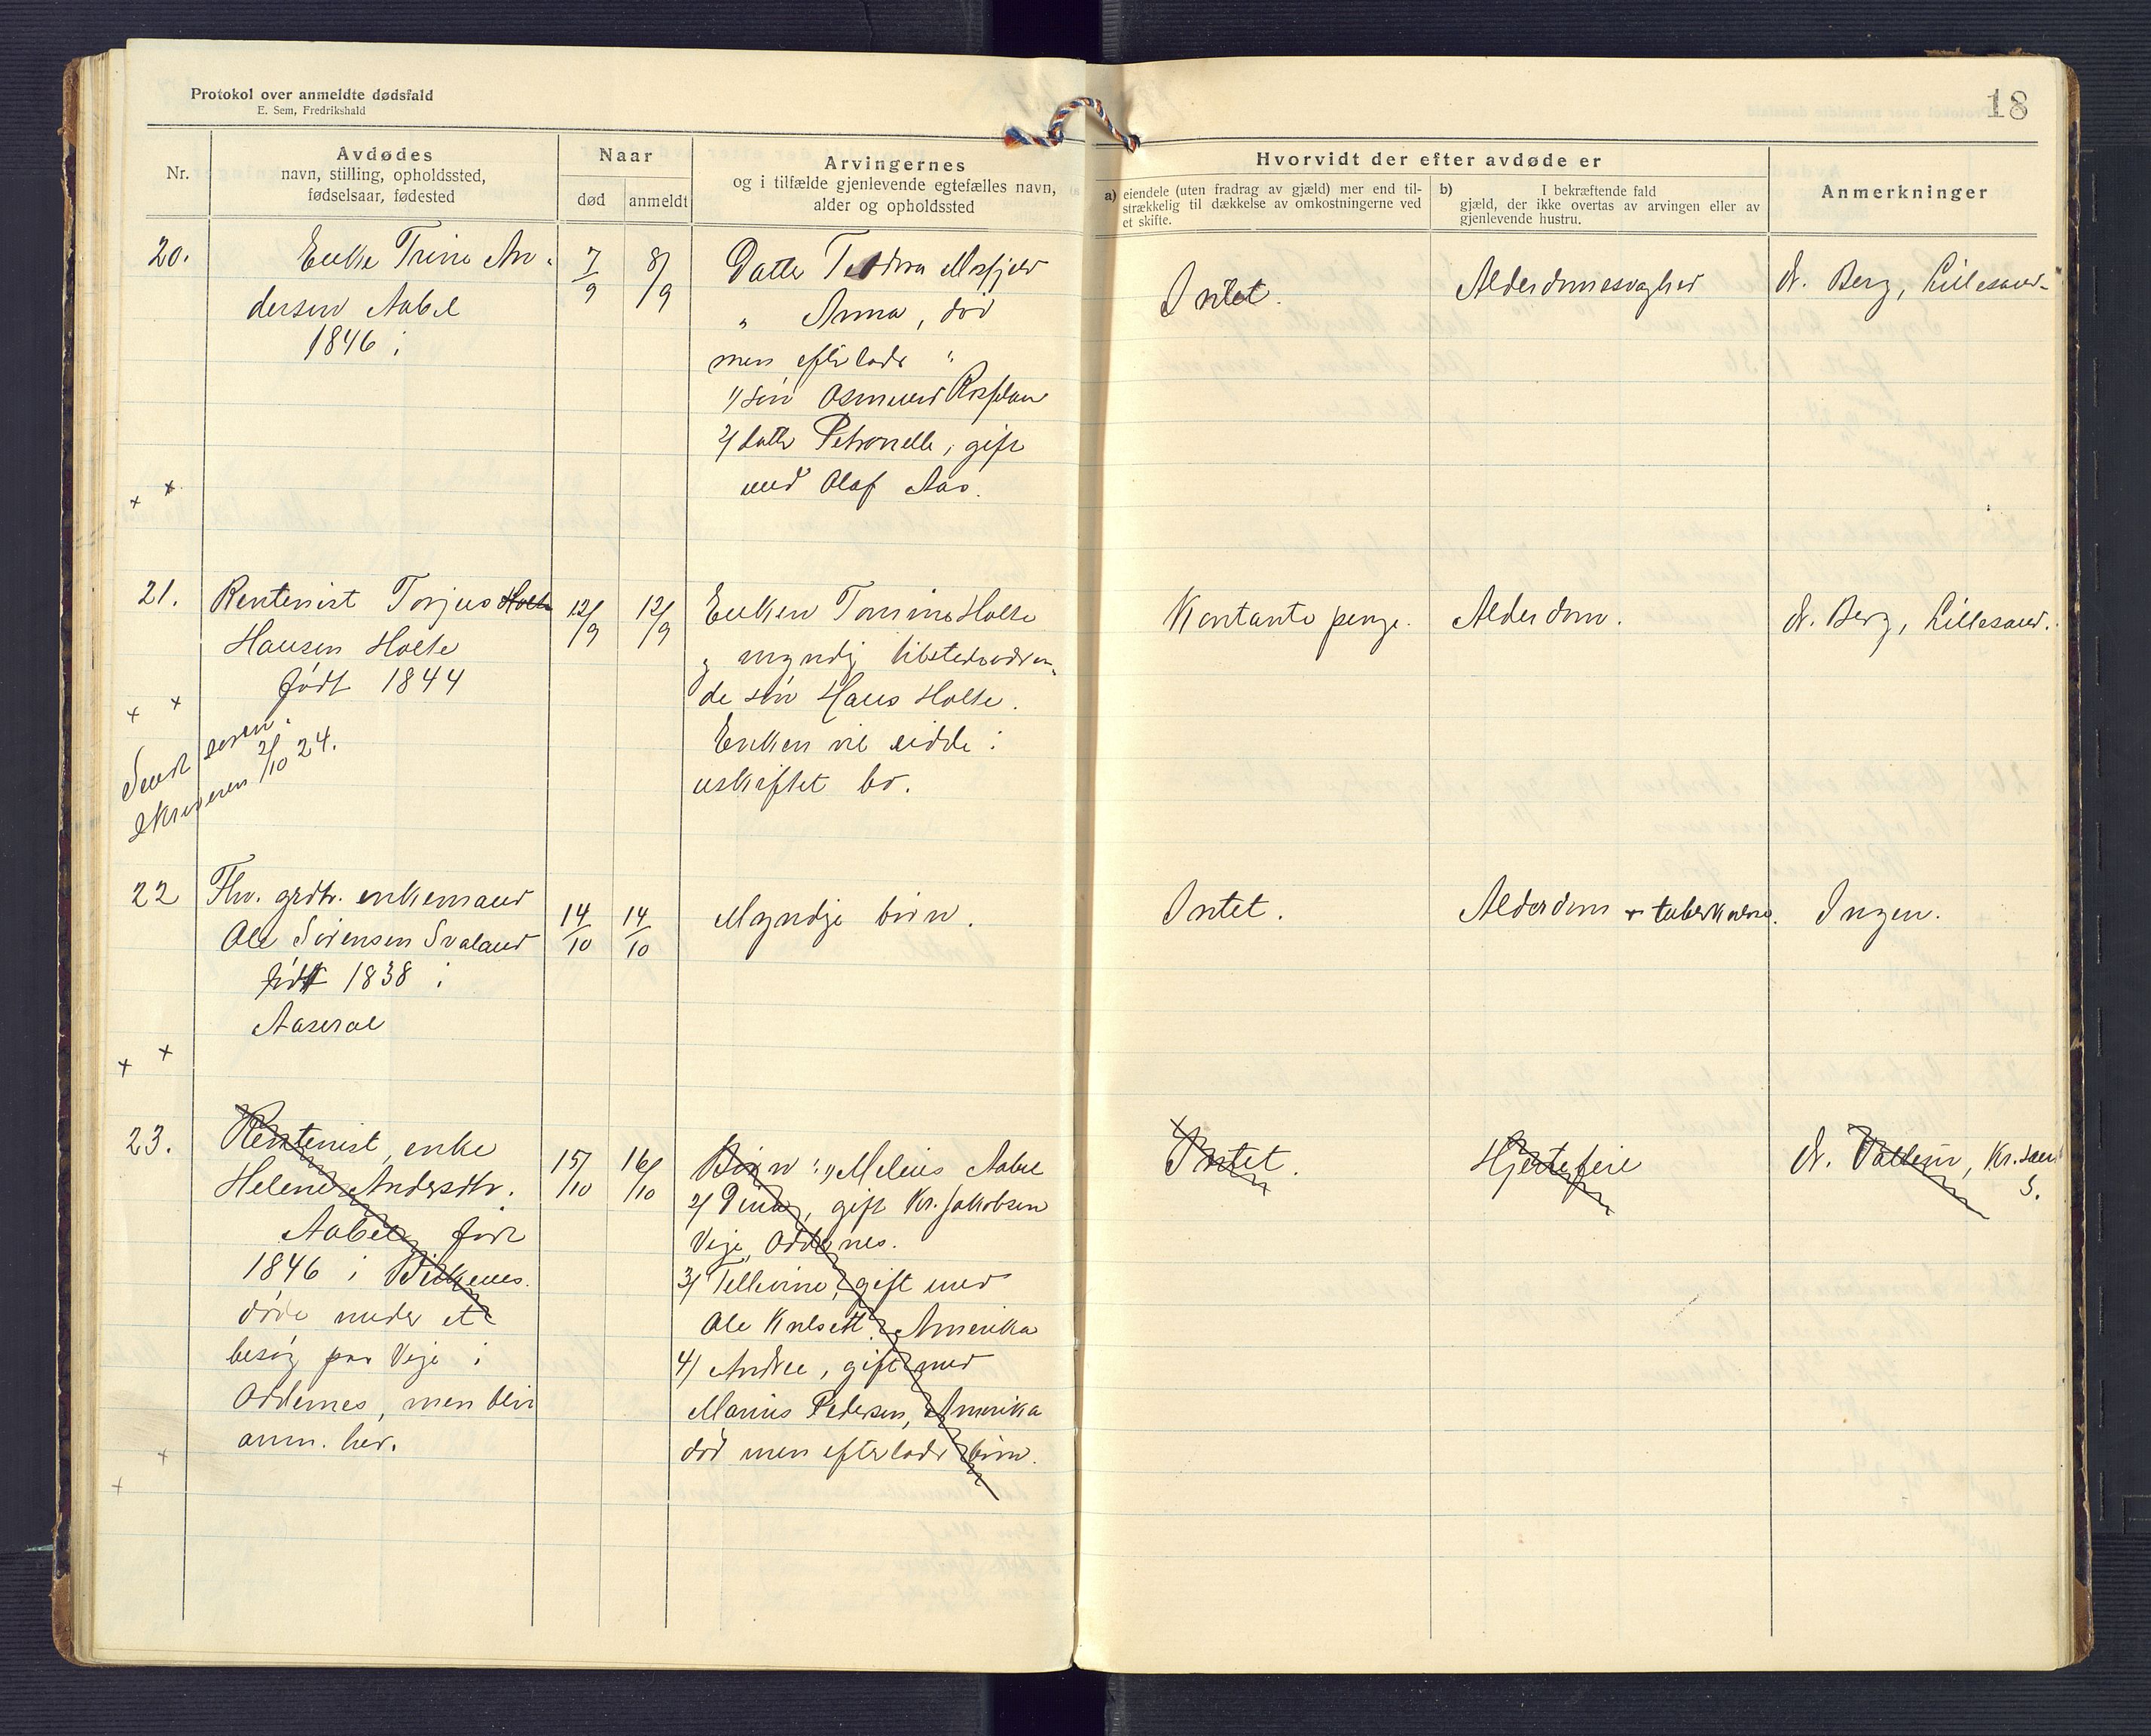 Protokol over anmeldte dødsfald
E. Sem, Fredrikshald
18
Nr.
Avdødes
navn, stilling, opholdssted,
fødselsaar, fødested
Naar
død
anmeldt
Arvingernes
og i tilfælde gjenlevende egtefælles navn,
alder og opholdssted
Hvorvidt der efter avdøde er
a) eiendele (uten fradrag av gjæld) mer end til-
strækkelig til dækkelse av omkostningerne ved
et skifte.
b) I bekræftende fald
gjæld, der ikke overtas av arvingen eller av
gjenlevende hustru.
Anmerkninger
20.
Enke Trine An-
dersen Aabel
1846 i
7/9
8/9
Datter
" Anna, död
men efterlader "
1) sön Osmund
2) datter Petronelle, gift
med Olaf Aas.
Intet.
Alderdomssvaghed
dr. Berg, Lillesand.
+ +
21.
Rentenist Torjus Holte
Hansen Holte
födt 1844
12/9
12/9
Enken Tomine Holte
og myndig tilstedeværen-
de sön Hans Holte.
Enken vil sidde i
uskiftet bo.
Kontante penge.
Alderdom.
dr. Berg, Lillesand.
+ +
Sendt soren-
skriveren 2/10 24.
22
Fhv. grdbr. enkemand
Ole Sörensen Svaland
födt 1838 i
Aaseral
14/10
14/10
Myndige börn.
Intet.
Alderdom + tuberkulose.
Ingen.
+ +
23.
Rentenist, enke
Helene Andersdtr.
Aabel, födt
1846 i Birkenes.
döde under et
besög paa Veje i
Oddernes, men blir
anm. her.
15/10
16/10
Börn: 1) Melius Aabel
2) Dina, gift Kr. Jakobsen
Veje, Oddernes.
3) Tellevine, gift med
Ole Knlsett, Amerika
4) Andrea, gift med
Marius Pedersen, Amerika
död men efterlader börn.
Intet.
Hjertefeil
dr. Kr.sand
S.
+ +